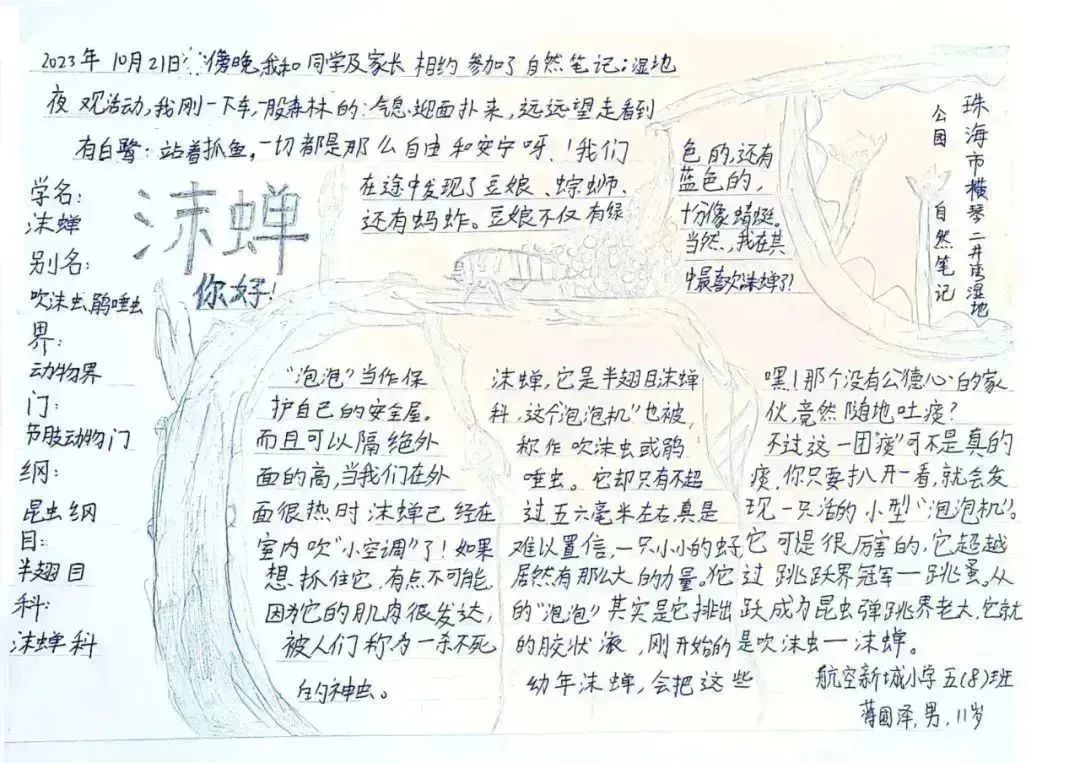 2023年10月21日傍晚,我和同学及家长相约参加了自然笔记:湿地
夜观活动,我刚一下车,一股森林的气息迎面扑来,远远望走看到
有白鹭:站着抓鱼,一切都是那么自由和安宁呀!我们
在途中发现了豆娘、蜘蛳、
还有蚂蚱。豆娘不仅有绿
色的,还有
蓝色的,
十分像蜻蜓。
当然,我在其
中最喜欢沫蝉了!
珠海市横琴二井湾湿地
公园 自然笔记
沫蝉
你好!
学名:
沫蝉
别名:
吹沫虫、鹃唾虫
界:
动物界
门:
节肢动物门
纲:
昆虫纲
目:
半翅目
科:
沫蝉科
嘿!那个没有公德心的家
伙,竟然随地吐痰?
不过这一团“痰”可不是真的
痰,你只要扒开一看,就会发
现一只活的小型“泡泡机”。
它可是很厉害的,它超越
过跳跃界冠军一跳蚤。从
跃成为昆虫弹跳界老大,它就
是吹沫虫一沫蝉。
沫蝉,它是半翅目沫蝉
科,这个“泡泡机”也被,
称作吹沫虫或鹃
唾虫。它却只有不超
过五六毫米左右,真是
难以置信,一只小小的虫子
居然有那么大的力量。它
的“泡泡”其实是它排出
的胶状液,刚开始的
幼年沫蝉,会把这些
“泡泡”当作保
护自己的安全屋。
而且可以隔绝外
面的高,当我们在外
面很热时沫蝉已经在
室内吹“小空调”了!如果
想抓住它,有点不可能,
因为它的肌肉很发达,
被人们称为一杀不死
的神虫。
航空新城小学五(8)班
蒋国泽,男,11岁